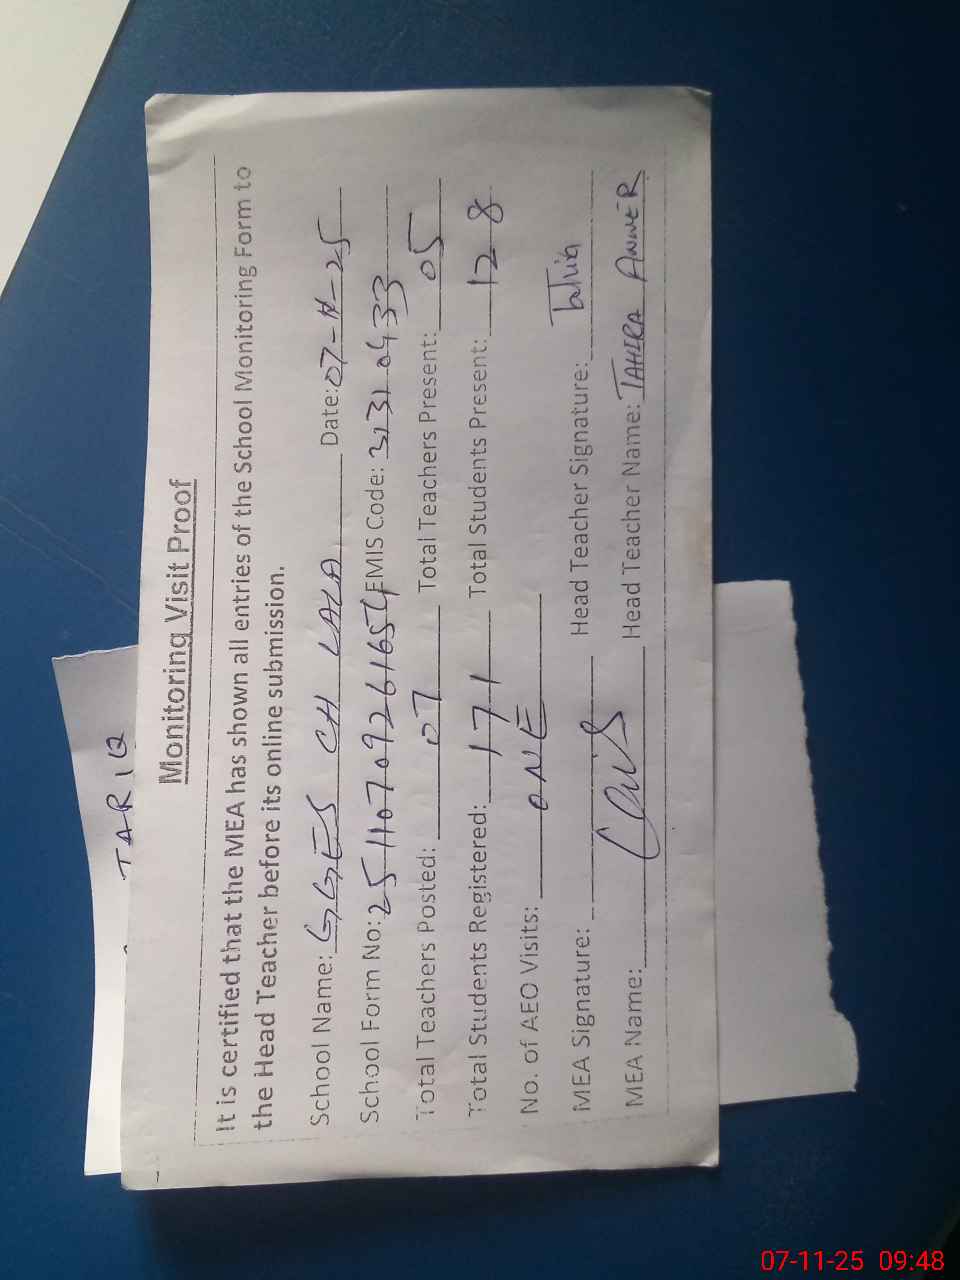 TARIQ
Monitoring Visit Proof
It is certified that the MEA has shown all entries of the School Monitoring Form to
the Head Teacher before its online submission.
School Name: GGES CH LALA Date: 07-11-25
School Form No: EMIS Code: 31310433
Total Teachers Posted: 07 Total Teachers Present: 05
Total Students Registered: 171 Total Students Present: 128
No. of AEO Visits: ONE
MEA Signature: Head Teacher Signature:
MEA Name: Head Teacher Name: TAHIRA ANWER
07-11-25 09:48